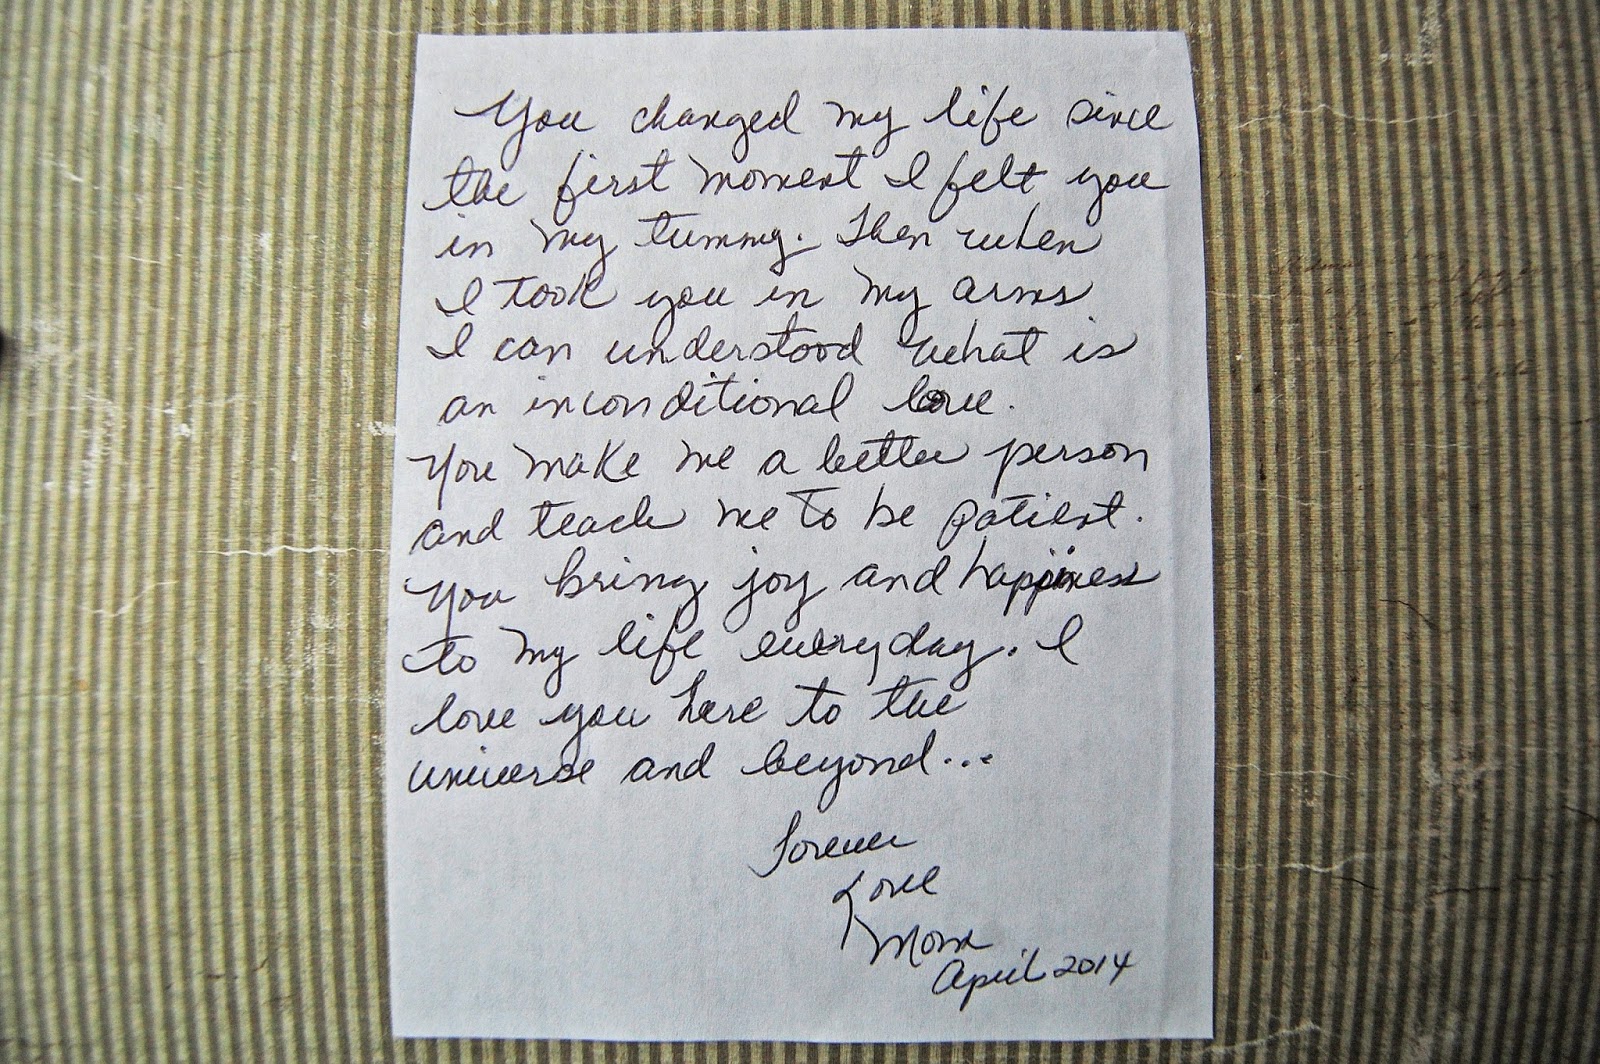 You changed my life since
the first moment I felt you
in my tummy. Then when
I took you in my arms
I can understood what is
an inconditional love.
You make me a better person
and teach me to be patient.
You bring joy and happiness
to my life everyday. I
love you here to the
universe and beyond...
Forever
Love
Mom
April 2014